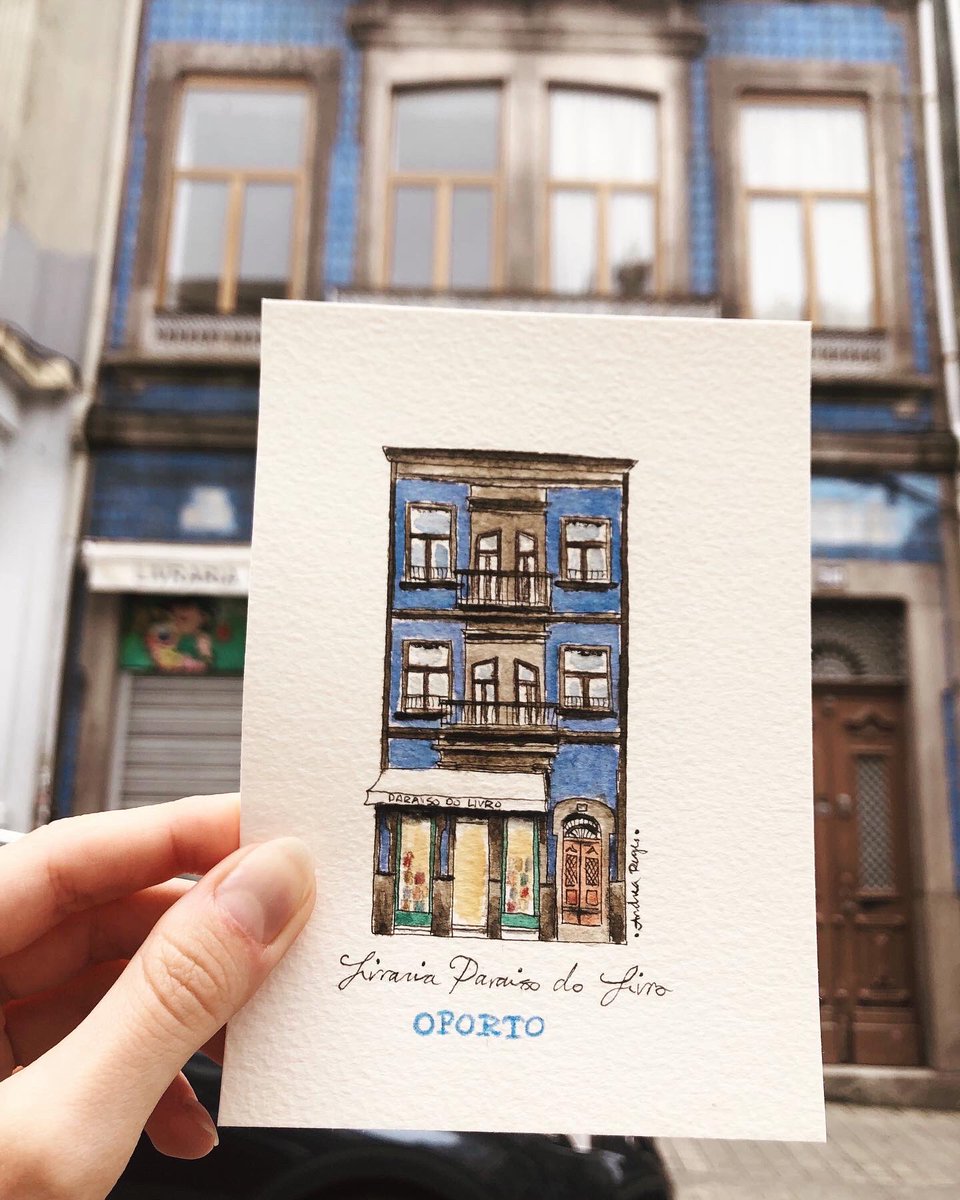 LIVRARIA
PARAISO DO LIVRO
• Andrea Regis •
Livraria Paraiso do Livro
OPORTO